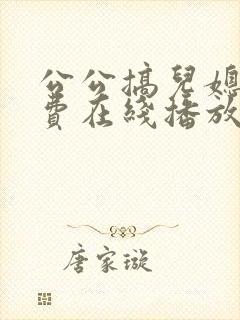 公公搞兒媳
費在綫播放
唐家璇